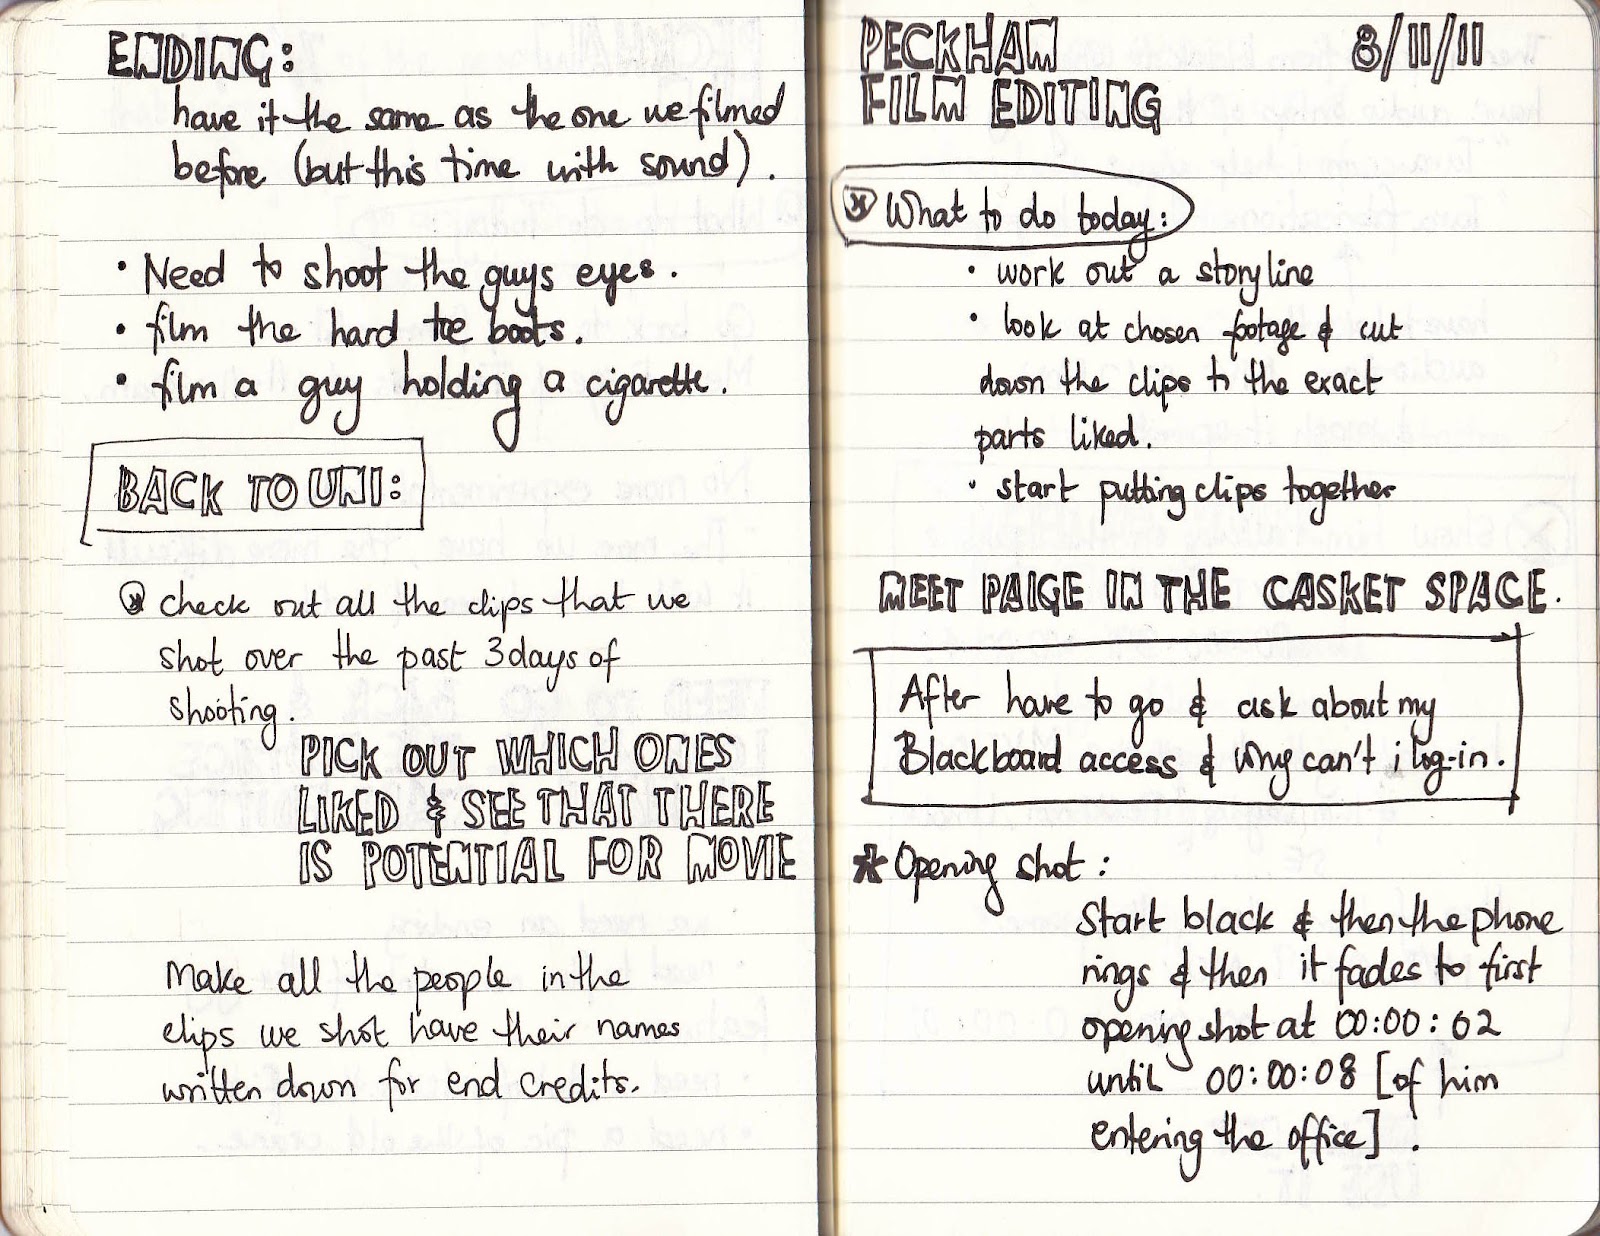 ENDING:
have it the same as the one we filmed
before (but this time with sound).
• Need to shoot the guys eyes.
• film the hard toe boots.
• film a guy holding a cigarette.
BACK TO UNI:
check out all the clips that we
shot over the past 3 days of
shooting.
PICK OUT WHICH ONES
LIKED & SEE THAT THERE
IS POTENTIAL FOR MOVIE
Make all the people in the
clips we shot have their names
written down for end credits.
PECKHAM 8/11/11
FILM EDITING
What to do today:
• work out a storyline
• look at chosen footage & cut
down the clips to the exact
parts liked.
• start putting clips together
MEET PAIGE IN THE CASKET SPACE.
After have to go & ask about my
Blackboard access & why can't i log-in.
* Opening shot:
Start black & then the phone
rings & then it fades to first
opening shot at 00:00:02
until 00:00:08 [of him
entering the office].